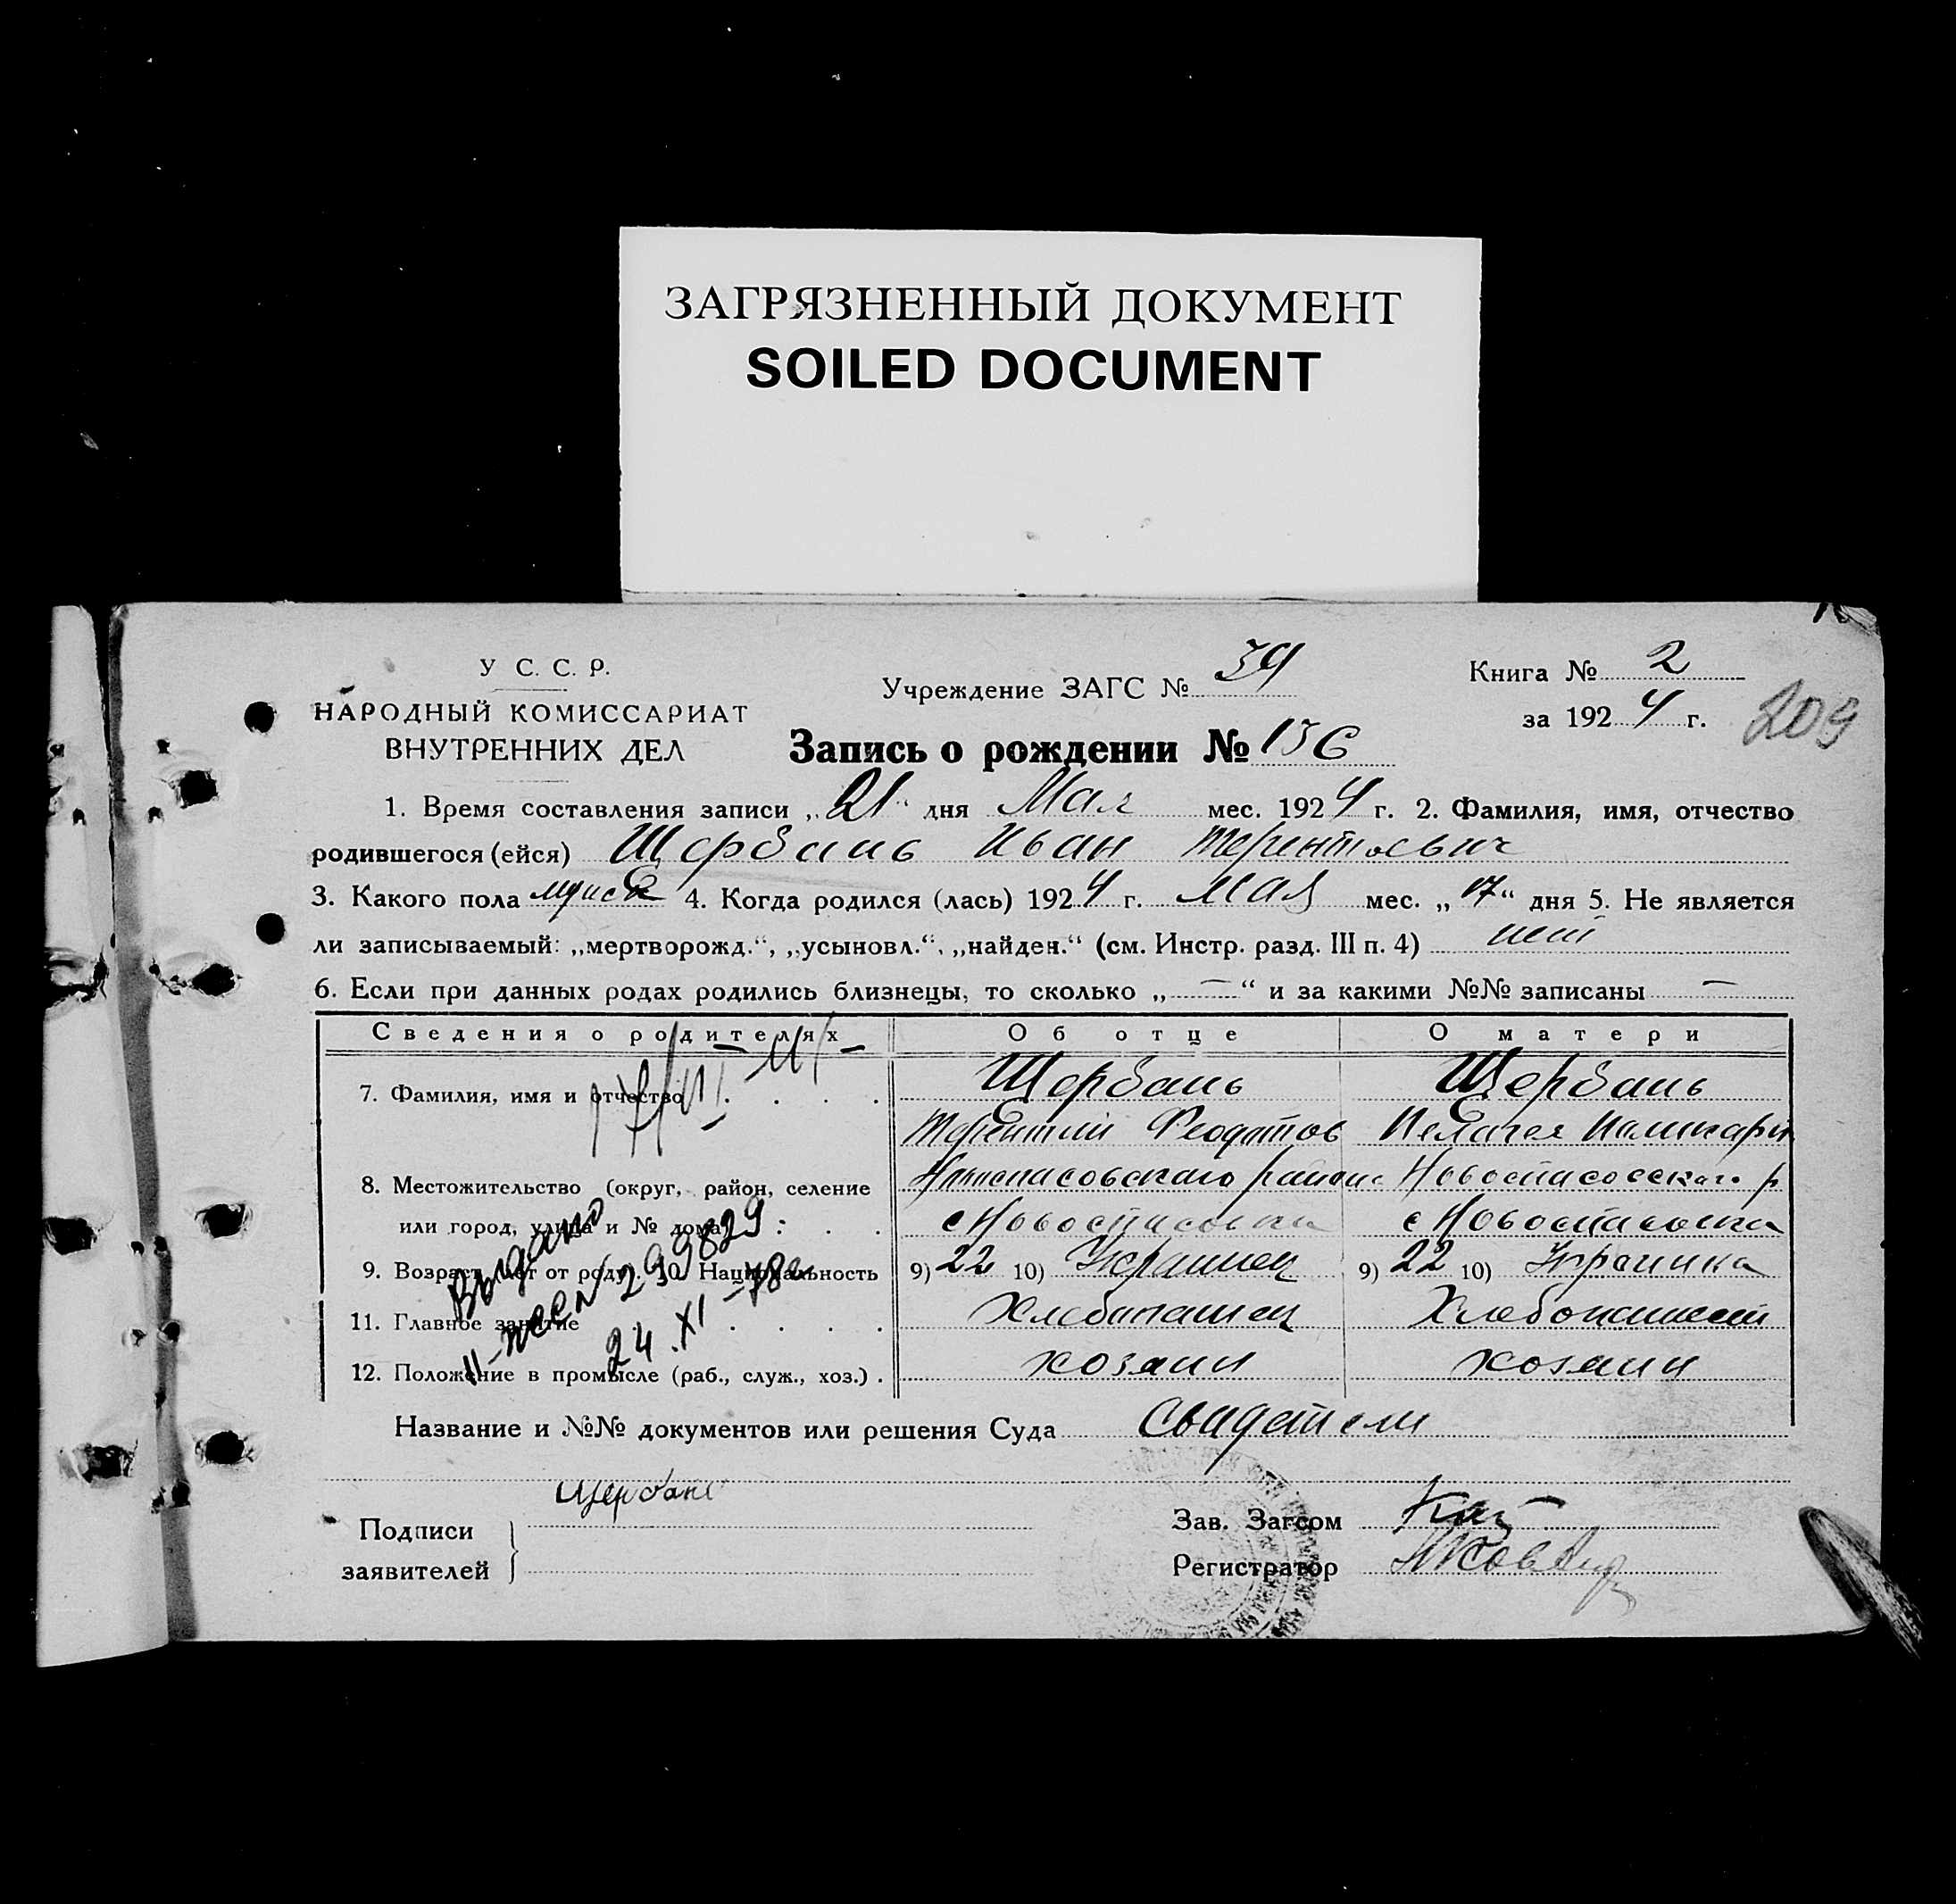 ЗАГРЯЗНЕННЫЙ ДОКУМЕНТ
SOILED DOCUMENT
У С. С. Р.
НАРОДНЫЙ КОМИССАРИАТ
ВНУТРЕННИХ ДЕЛ
Учреждение ЗАГС № 39
Книга № 2
за 1924 г.
209
Запись о рождении № 136
1. Время составления записи „21" дня Мая мес. 1924 г. 2. Фамилия, имя, отчество
родившегося (ейся) Щербань Иван Терентьевич
3. Какого пола мужск 4. Когда родился (лась) 1924 г. мая мес. „17" дня 5. Не является
ли записываемый: „мертворожд.", „усыновл.", „найден." (см. Инстр. разд. III п. 4) нет
6. Если при данных родах родились близнецы, то сколько „—" и за какими №№ записаны —
Сведения о родителях Об отце О матери
7. Фамилия, имя и отчество Щербань Щербань
Терентий Феодотов Пелагея
8. Местожительство (округ, район, селение Новоспасовского района Новоспасовского р
или город, улица и № дома) с Новоспасовка с Новоспасовка
9. Возраст лет от роду. 10. Национальность 9) 22 10) Украинец 9) 22 10) Украинка
11. Главное занятие Хлебопашец Хлебопашест
12. Положение в промысле (раб., служ., хоз.) хозяин хозяин
Выдано
299829
24.XI-78г
Название и №№ документов или решения Суда Свидетели
Подписи
заявителей
Щербань
Зав. Загсом
Регистратор